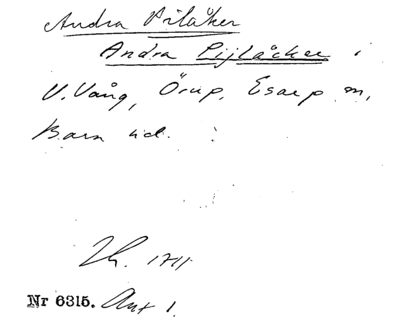 Andra Pilåker
Andra Pijlåcker i
V. Vång, Örup, Esarp m,
Bara hd.
Lh. 1711
Nr 6315. Ant 1.